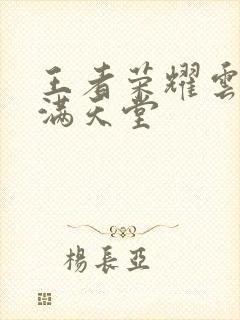 王者荣耀雲
满天堂
楊長亞